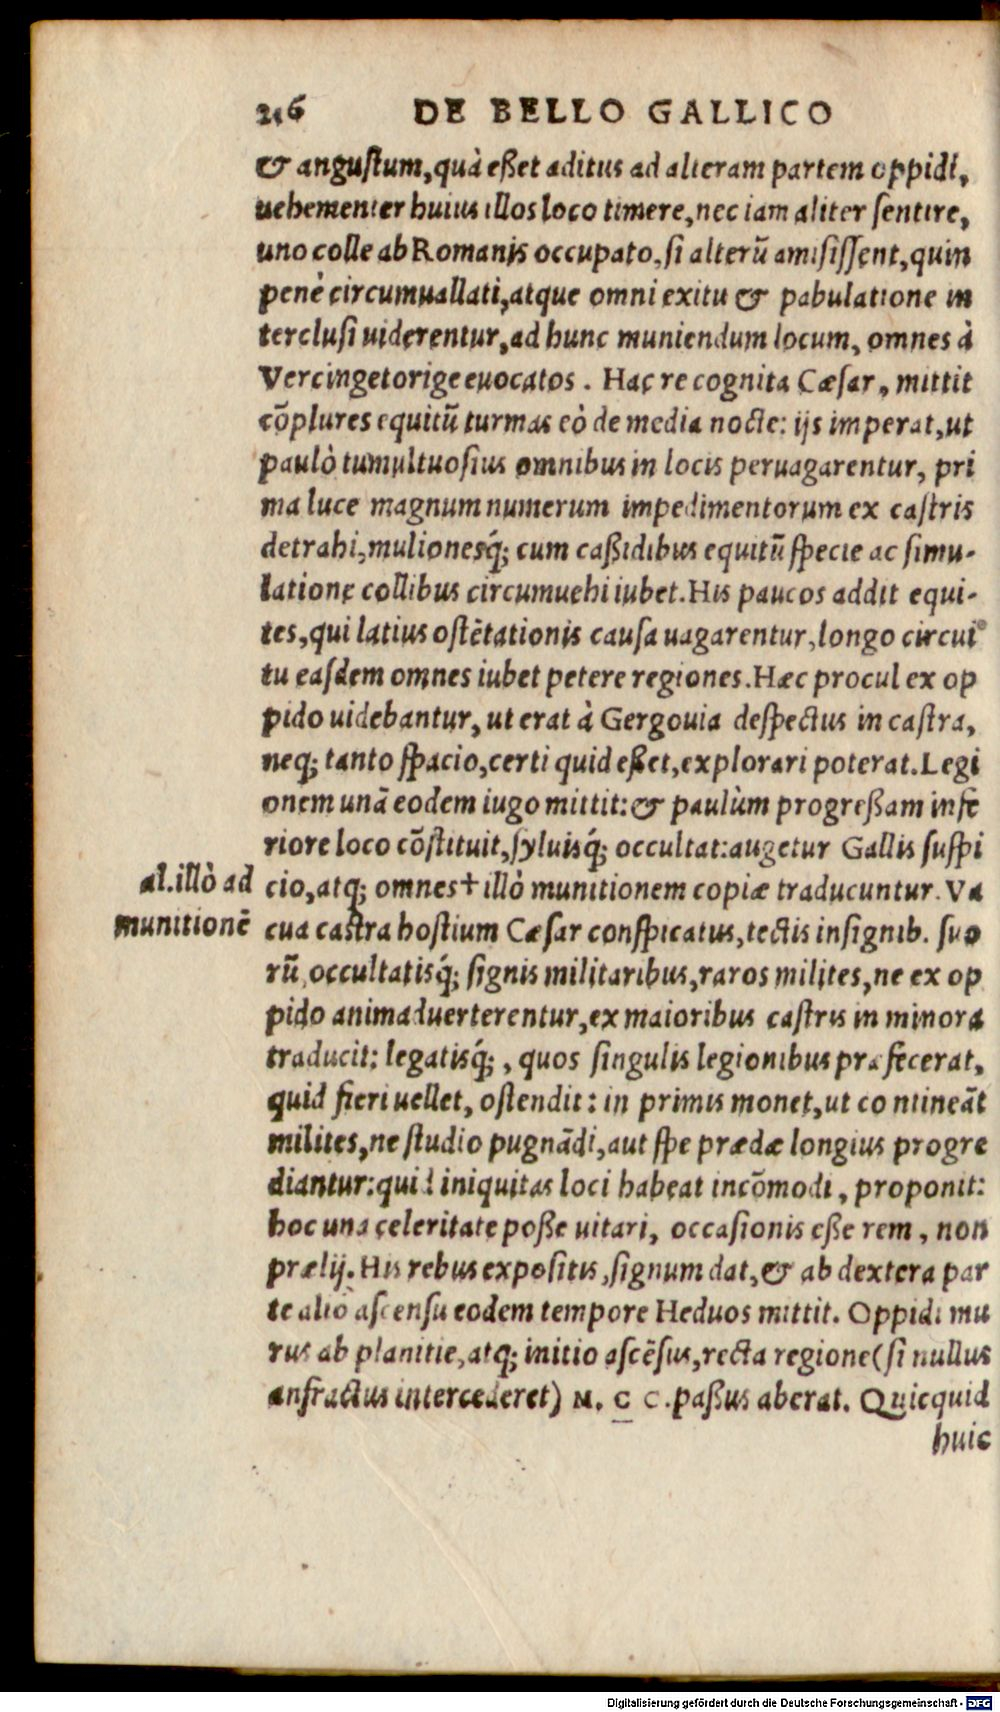 216 DE BELLO GALLICO
& angustum, quà eßet aditus ad alteram partem oppidi,
uehementer huius illos loco timere, nec iam aliter sentire,
uno colle ab Romanis occupato, si alterũ amisissent, quin
penè circumuallati, atque omni exitu & pabulatione in
terclusi uiderentur, ad hunc muniendum locum, omnes à
Vercingetorige euocatos. Hac re cognita Cæsar, mittit
cõplures equitũ turmas eò de media nocte: ijs imperat, ut
paulò tumultuosius omnibus in locis peruagarentur, pri
ma luce magnum numerum impedimentorum ex castris
detrahi, mulionesq́; cum caßidibus equitũ specie ac simu-
latione collibus circumuehi iubet. His paucos addit equi-
tes, qui latius ostẽtationis causa uagarentur, longo circui
tu easdem omnes iubet petere regiones. Hæc procul ex op
pido uidebantur, ut erat à Gergouia despectus in castra,
neq; tanto spacio, certi quid eßet, explorari poterat. Legi
onem unã eodem iugo mittit: & paulùm progreßam infe
riore loco cõstituit, syluisq́; occultat: augetur Gallis suspi
al. illò ad cio, atq; omnes† illò munitionem copiæ traducuntur. Va
munitionẽ cua castra hostium Cæsar conspicatus, tectis insignib. suo
rũ, occultatisq́; signis militaribus, raros milites, ne ex op
pido animaduerterentur, ex maioribus castris in minora
traducit: legatisq́;, quos singulis legionibus præfecerat,
quid fieri uellet, ostendit: in primis monet, ut contineãt
milites, ne studio pugnãdi, aut spe prædæ longius progre
diantur: quid iniquitas loci habeat incõmodi, proponit:
hoc una celeritate poße uitari, occasionis eße rem, non
prælij. His rebus expositis, signum dat, & ab dextera par
te aliò ascensu eodem tempore Heduos mittit. Oppidi mu
rus ab planitie, atq; initio ascẽsus, recta regione (si nullus
anfractus intercederet) M. C C. paßus aberat. Quicquid
huic
Digitalisierung gefördert durch die Deutsche Forschungsgemeinschaft - DFG